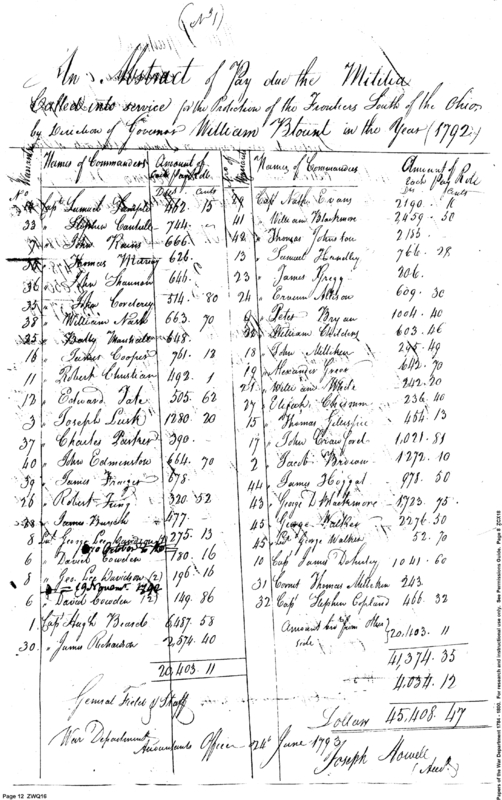 (No 1)
An Abstract of Pay due the Militia
Called into service for the Protection of the Frontiers South of the Ohio
by Direction of Governor William Blount in the Year (1792)
No of Warrants Names of Commanders Amount of each Pay Role
Dolls Cents
Capt Samuel 462. 15
33 " Stephen Cantrell 744. -
" John Rains 666.
" Thomas Murray 626.
36 " John Shannon 644.
35 " John 514. 80
38 " William Nash 663. 70
25 " 648.
16 " James Cooper 761. 13
11 " Robert Christian 492. 1
12 " Edward Tate 505. 62
3 " Joseph Lusk 1280 20
37 " Charles Parker 390.
40 " John Edmenston 664. 70
39 " James 678.
26 " Robert King 320. 52
28 " James 477.
8 Lt George Lee Davidson 275. 13
6 " David Cowden 780. 16
8 " Geo. Lee Davidson (2) 196. 16
6 " David Cowden (2) 149. 86
1. Capt Hugh Beard 6487. 58
30. " James Richardson 2,574. 40
20,403. 11
No of Warrants Names of Commanders Amount of each Pay Role
Ds Cents
29 Capt Nath Evans 2190.
41 " William Blackmore 2459. 50
42 " Thomas Johnston 2155.
13 " Samuel Handley 766. 28
23 " James 206.
24 " 609. 30
9 " Peter Bryan 1004. 40
" William Childers 603. 46
18 " John Milliken 49
19 " Alexander Greer 70
21 " William White 242. 20
27 " Elijah Chisum 236. 40
15 " Thomas Gillespie 454. 13
17 " John Crawford 1,021. 81
2 " Jacob Brown 1272. 10
44 " James Hoggat 978. 50
43 " George D Blackmore 1723. 75.
45 " George Walker 2276. 50
45 " George Walker 52. 70
10 Capt James Doherty 1041. 60
31 Cornet Thomas Milliken 243.
32 Capt Stephen Copland 466. 32
Amount from other side 20,403. 11
41,374. 35
General Field & Staff 4,034. 12
Dollars 45,408. 47
War Department
Accountants Office 24th June 1793
Joseph Howell
Page 12 ZWQ16
Papers of the War Department 1784 - 1800. For research and instructional use only. See Permissions Guide. Page 9 ZCX18